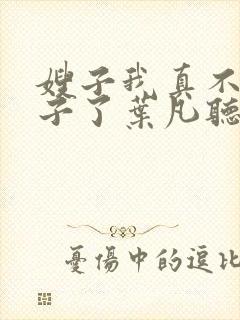 嫂子我真不
子了葉凡聽
憂傷中的逗比